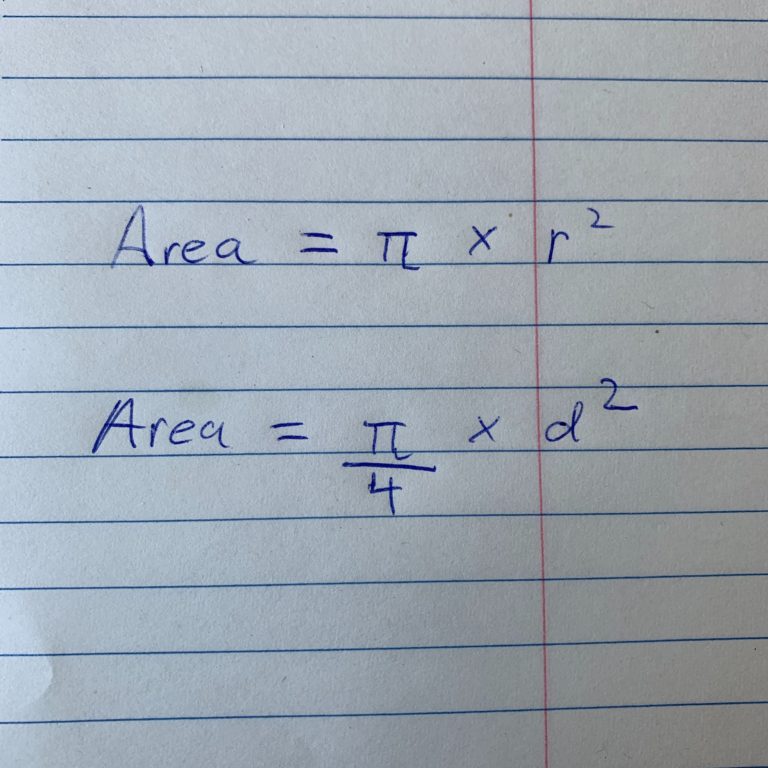 Area = π × r²
Area = π/4 × d²